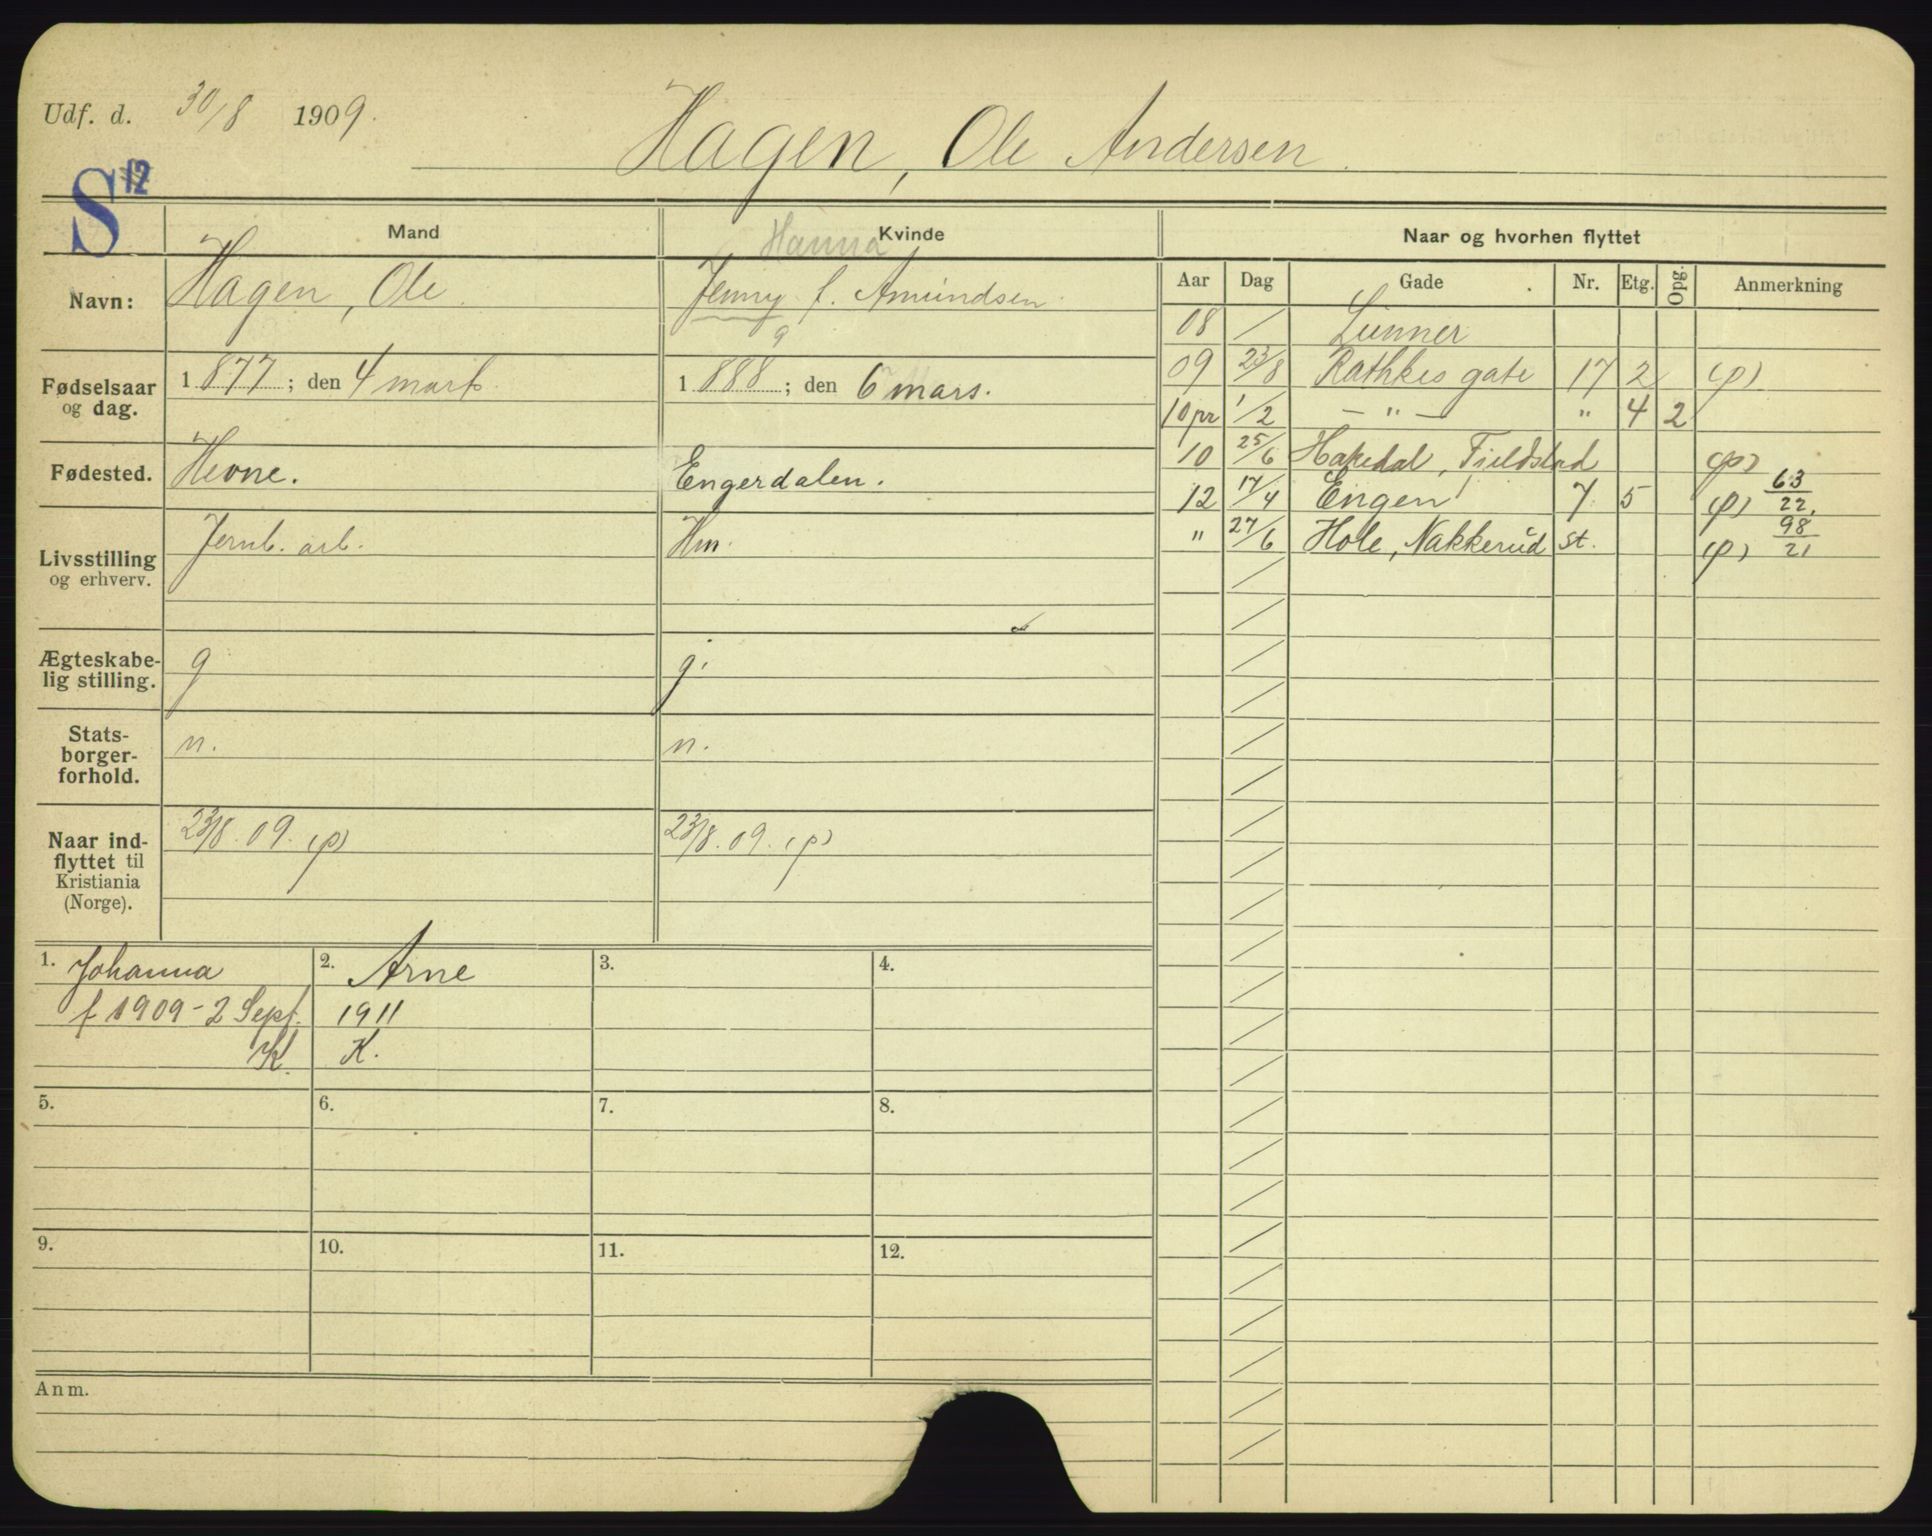 Udf. d. 30/8 1909.
Hagen, Ole Andersen.
S 12
Mand
Kvinde
Naar og hvorhen flyttet
Hanna
Navn: Hagen, Ole. Jenny f. Amundsen.
Aar Dag Gade Nr. Etg. Opg. Anmerkning
08 / Lunner
9
Fødselsaar og dag. 1877; den 4 mars. 1888; den 6 mars.
09 23/8 Rathkes gate 17 2 (p)
10 pr 1/2 — " — " 4 2
Fødested. Hevne. Engerdalen.
10 25/6 Hakedal, Fjeldstad (p)
12 17/4 Engen 7 5 (p) 63/22.
" 27/6 Hole, Nakkerud st. (p) 98/21
Livsstilling og erhverv. Jernb. arb. Hm.
Ægteskabe-
lig stilling. g g.
Stats-
borger-
forhold. n. n.
Naar ind-
flyttet til
Kristiania
(Norge). 23/8. 09. (p) 23/8. 09. (p)
1. Johanna
f 1909 - 2 Sept.
K.
2. Arne
1911
K.
3.
4.
5.
6.
7.
8.
9.
10.
11.
12.
Anm.